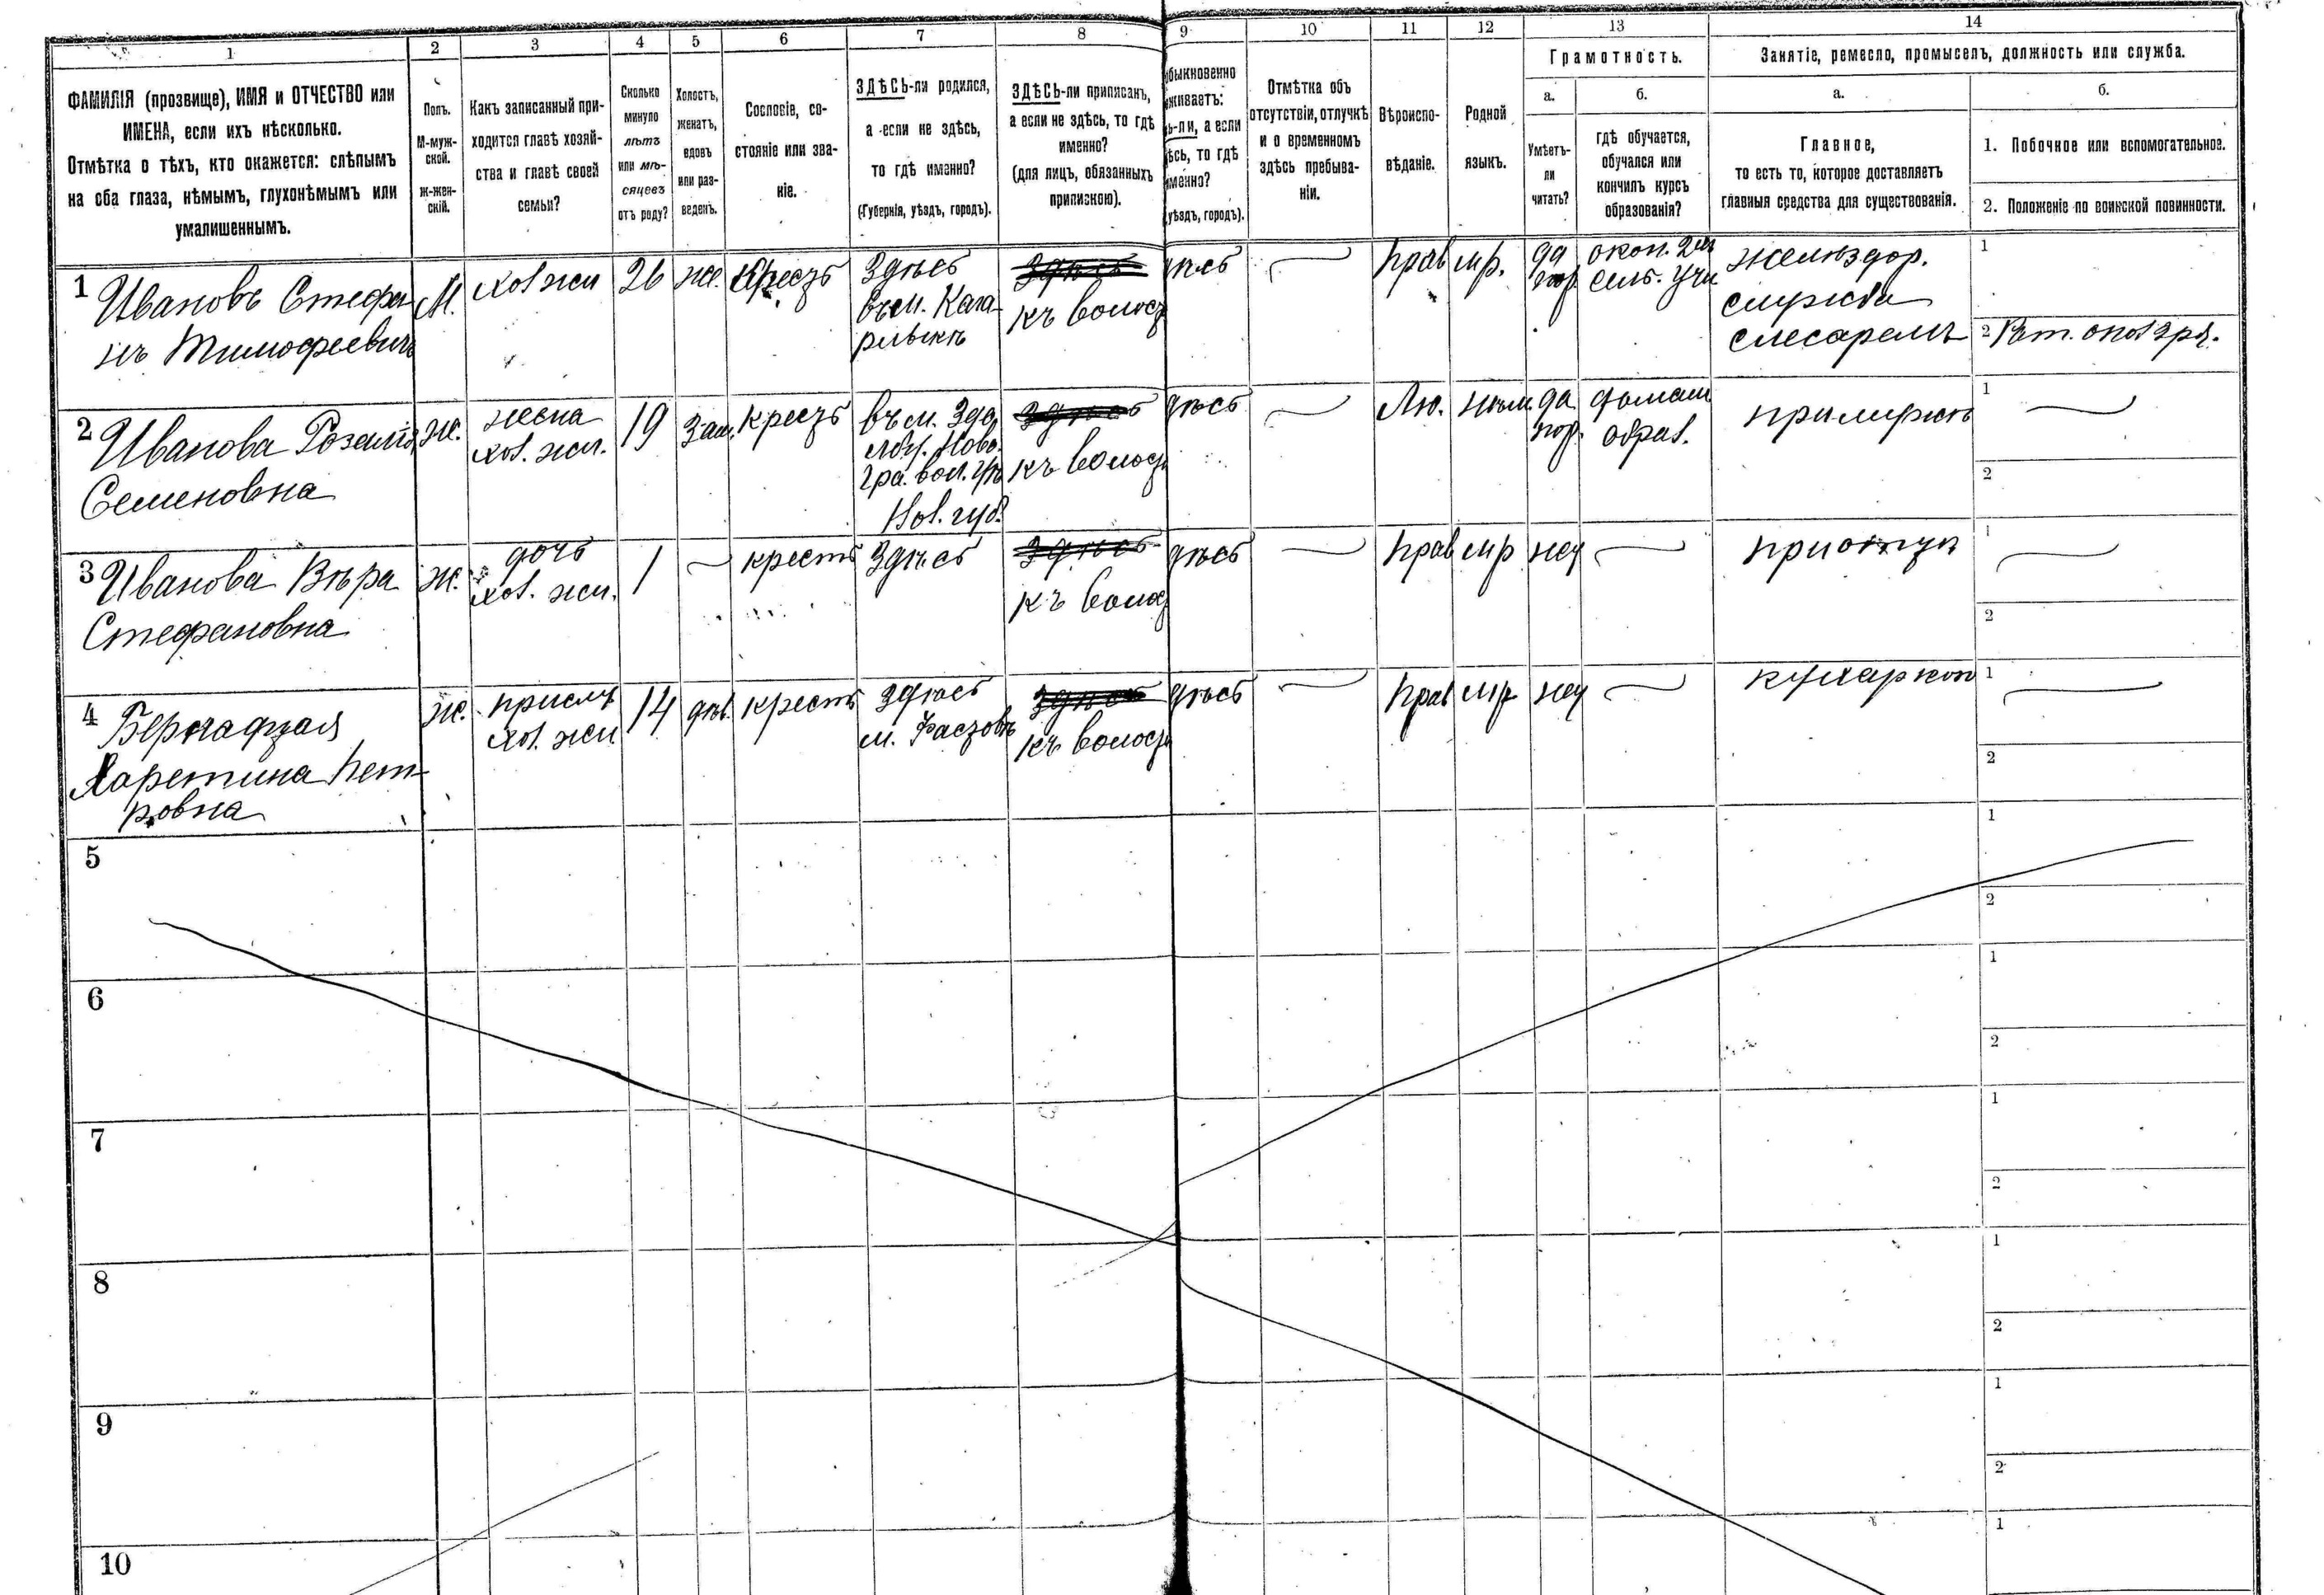 1 2 3 4 5 6 7 8 9 10 11 12 13 14
ФАМИЛІЯ (прозвище), ИМЯ и ОТЧЕСТВО или
ИМЕНА, если ихъ нѣсколько.
Отмѣтка о тѣхъ, кто окажется: слѣпымъ
на оба глаза, нѣмымъ, глухонѣмымъ или
умалишеннымъ.
Полъ.
М-муж-
ской.
Ж-жен-
скій.
Какъ записанный при-
ходится главѣ хозяй-
ства и главѣ своей
семьи?
Сколько
минуло
лѣтъ
или мѣ-
сяцевъ
отъ роду?
Холостъ,
женатъ,
вдовъ
или раз-
веденъ.
Сословіе, со-
стояніе или зва-
ніе.
ЗДѢСЬ-ли родился,
а если не здѣсь,
то гдѣ именно?
(Губернія, уѣздъ, городъ).
ЗДѢСЬ-ли приписанъ,
а если не здѣсь, то гдѣ
именно?
(для лицъ, обязанныхъ
припискою).
быкновенно
живаетъ:
ь-ли, а если
ѣсь, то гдѣ
менно?
уѣздъ, городъ).
Отмѣтка объ
отсутствіи, отлучкѣ
и о временномъ
здѣсь пребыва-
ніи.
Вѣроиспо-
вѣданіе.
Родной
языкъ.
Грамотность.
а.
Умѣетъ-
ли
читать?
б.
гдѣ обучается,
обучался или
кончилъ курсъ
образованія?
Занятіе, ремесло, промыселъ, должность или служба.
а.
Главное,
то есть то, которое доставляетъ
главныя средства для существованія.
б.
1. Побочное или вспомогательное.
2. Положеніе по воинской повинности.
1 Ивановъ Стефа-
нъ Тимофеевичъ
М.
хоз жи
26
же.
Крест
Здѣсь
въ м. Кага-
рлыкѣ
Здѣсь
къ волост
дѣсь
прав
мр.
да
окон. 2
сель. учи
желѣздор.
служба
слесаремъ
1
2
2 Иванова Розалія
Семеновна
ж.
жена
хоз. жи.
19
Зам.
крест
въ м.
Здѣсь
къ волост
дѣсь
Лю.
нѣм.
да
домаш
образ.
при мужѣ
1
2
3 Иванова Вѣра
Стефановна
ж.
дочь
хоз. жи.
1
крест
Здѣсь
Здѣсь
къ волос
дѣсь
прав
мр
не
при отцѣ
1
2
4
Пет-
ровна
ж.
прислу
хоз. жи
14
дѣв.
крест
здѣсь
м. Фастовъ
Здѣсь
къ волост
дѣсь
прав
мр
не
кухаркой
1
2
5
1
2
6
1
2
7
1
2
8
1
2
9
1
2
10
1